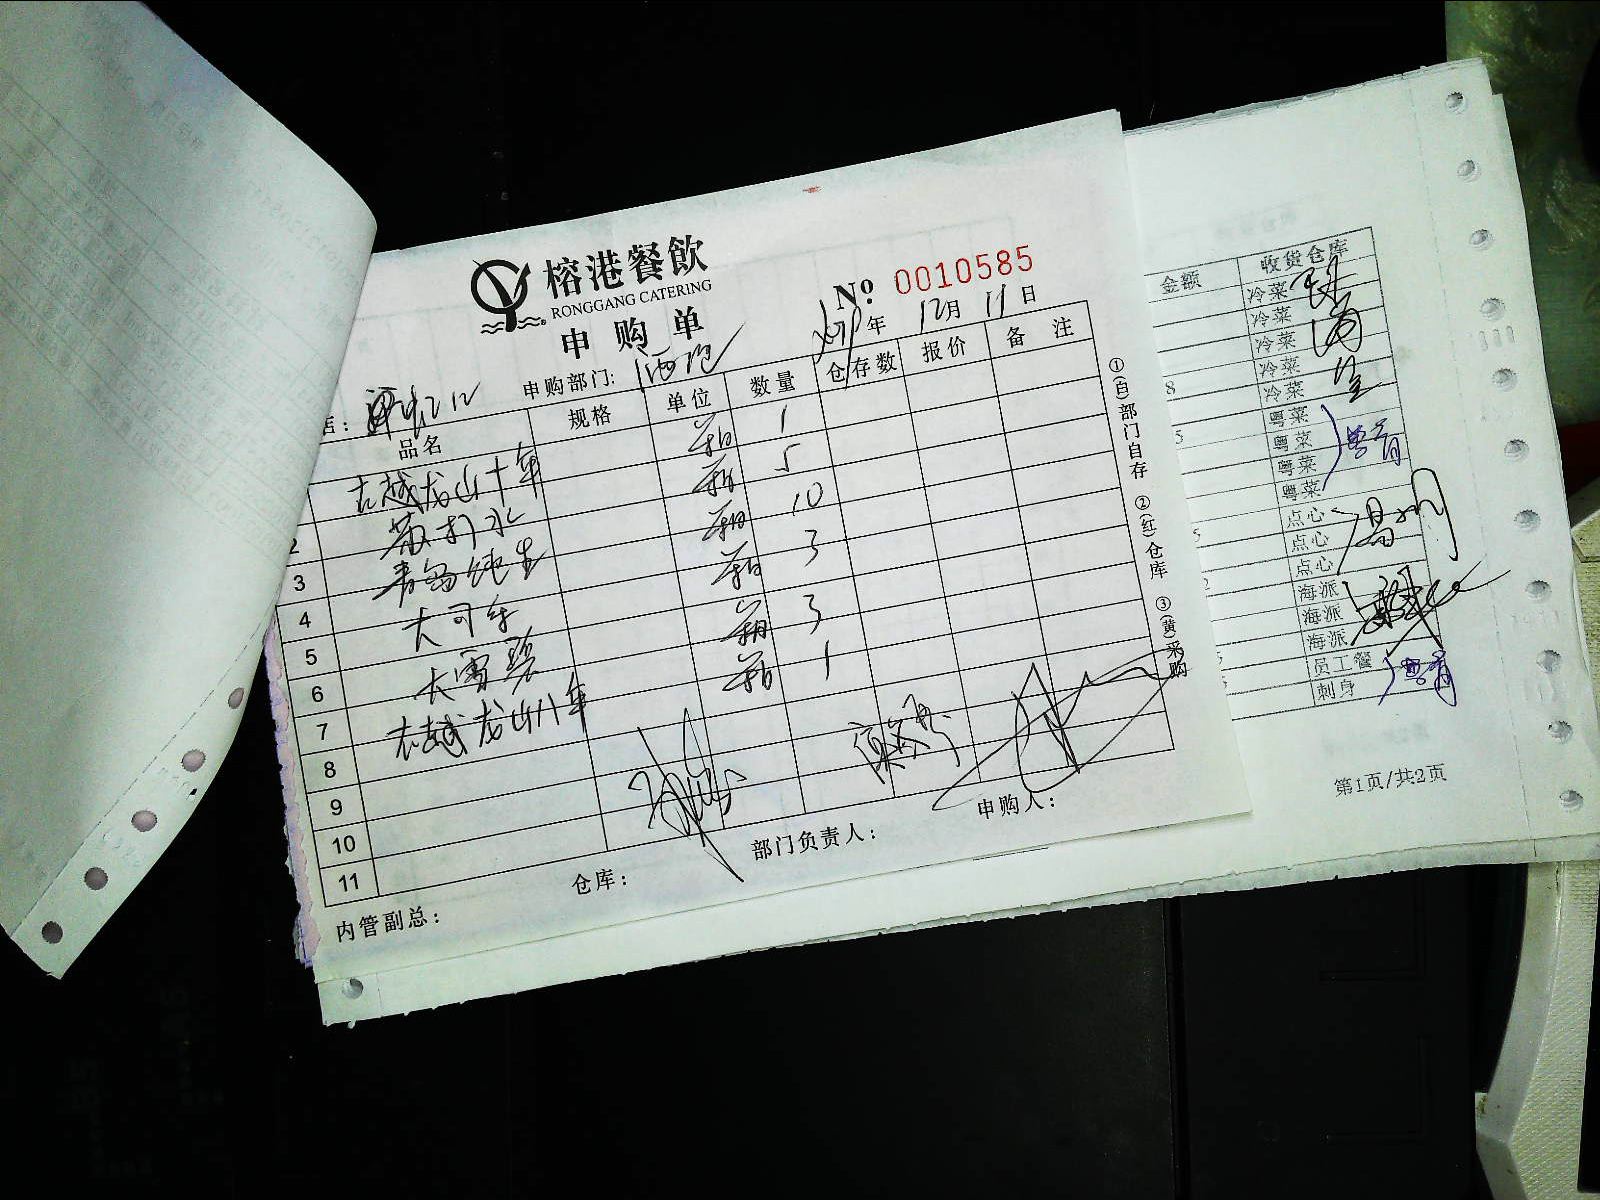 榕港餐飲
RONGGANG CATERING
申购单
№ 0010585
年 12月 11日
店:
申购部门: 酒吧
品名 规格 单位 数量 仓存数 报价 备注
古越龙山十年 箱 1
2 苏打水 箱 5
3 青岛纯生 箱 10
4 大可乐 箱 3
5 大雪碧 箱 3
6 古越龙山八年 箱 1
7
8
9
10
11
内管副总:
仓库:
部门负责人:
申购人:
①(白)部门自存 ②(红)仓库 ③(黄)采购
金额 收货仓库
冷菜
冷菜
冷菜
8 冷菜
冷菜
5 粤菜
粤菜
粤菜
粤菜
5 点心
点心
2 点心
海派
海派
海派
员工餐
刺身
第1页/共2页